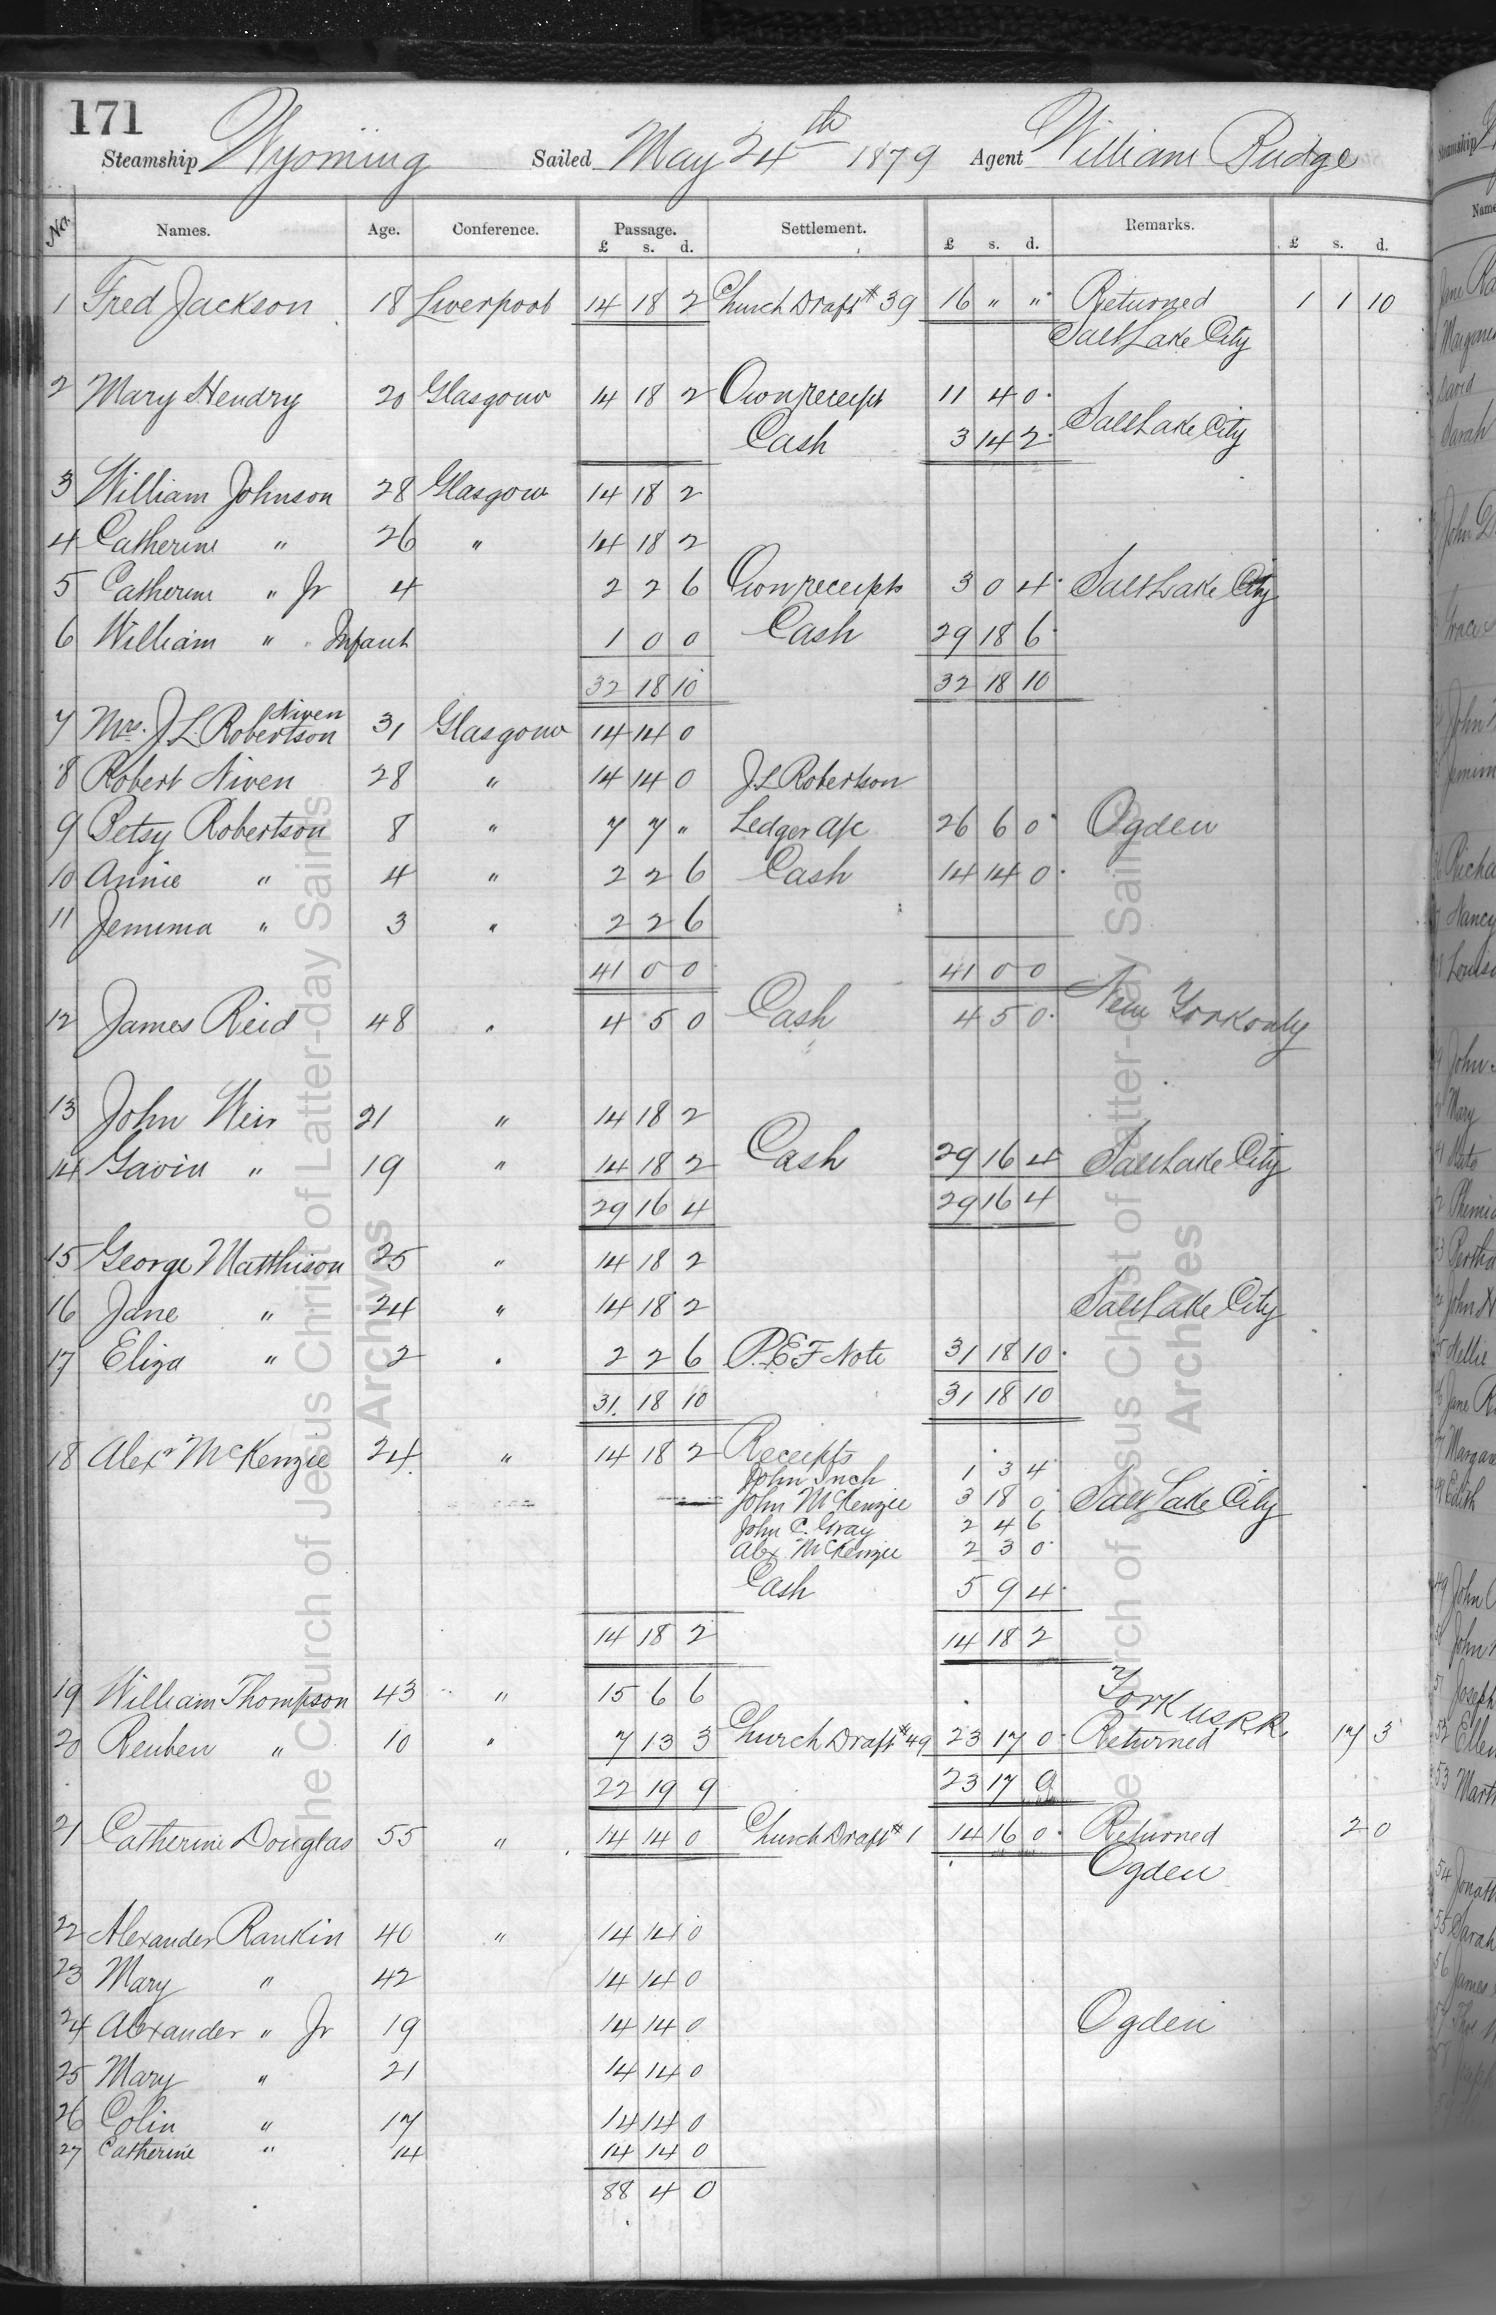 171
Steamship Wyoming Sailed May 24th 1879 Agent William Budge
No. Names. Age. Conference. Passage. £ s. d. Settlement. £ s. d. Remarks. £ s. d.
1 Fred Jackson 18 Liverpool 14 18 2 Church Draft # 39 16 " " Returned 1 1 10
Salt Lake City
2 Mary Hendry 20 Glasgow 14 18 2 Own receipt 11 4 0
Cash 3 14 2 Salt Lake City
3 William Johnson 28 Glasgow 14 18 2
4 Catherine " 26 " 14 18 2
5 Catherine " Jr 4 2 2 6 Own receipts 3 0 4 Salt Lake City
6 William " Infant 1 0 0 Cash 29 18 6
32 18 10 32 18 10
Niven
7 Mrs. J L Robertson 31 Glasgow 14 14 0
8 Robert Niven 28 " 14 14 0 J L Robertson
9 Betsy Robertson 8 " 7 7 " Ledger a/c 26 6 0 Ogden
10 Annie " 4 " 2 2 6 Cash 14 14 0
11 Jemima " 3 " 2 2 6
41 0 0 41 0 0
12 James Reid 48 " 4 5 0 Cash 4 5 0 New York only
13 John Weir 21 " 14 18 2
14 Gavin " 19 " 14 18 2 Cash 29 16 4 Salt Lake City
29 16 4 29 16 4
15 George Matthison 25 " 14 18 2
16 Jane " 24 " 14 18 2 Salt Lake City
17 Eliza " 2 " 2 2 6 P.E.F Note 31 18 10
31 18 10 31 18 10
18 Alexr McKenzie 24 " 14 18 2 Receipts
John Inch 1 3 4
John McKenzie 3 18 0 Salt Lake City
John C. Gray 2 4 6
Alex McKenzie 2 3 0
Cash 5 9 4
14 18 2 14 18 2
19 William Thompson 43 " 15 6 6 York U S R R.
20 Reuben " 10 " 7 13 3 Church Draft # 49 23 17 0 Returned 17 3
22 19 9 23 17 0
21 Catherine Douglas 55 " 14 14 0 Church Draft # 1 14 16 0 Returned 2 0
Ogden
22 Alexander Rankin 40 " 14 14 0
23 Mary " 42 14 14 0
24 Alexander " Jr 19 14 14 0 Ogden
25 Mary " 21 14 14 0
26 Colin " 17 14 14 0
27 Catherine " 14 14 14 0
88 4 0
The Church of Jesus Christ of Latter-day Saints
Archives
The Church of Jesus Christ of Latter-day Saints
Archives